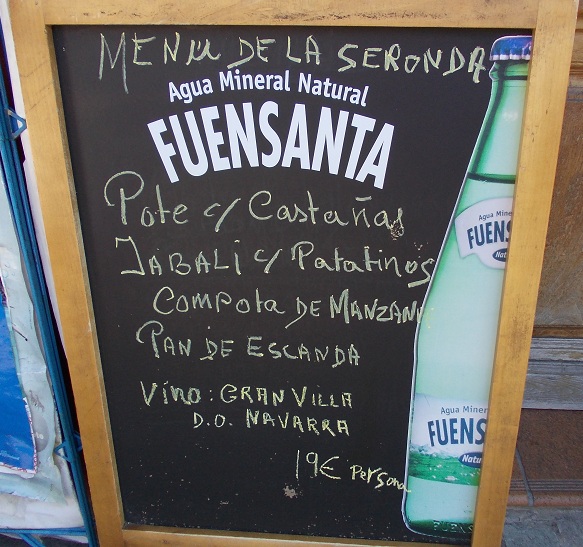 MENU DE LA SERONDA
Agua Mineral Natural
FUENSANTA
Pote c/ Castañas
JABALI c/ Patatinos
COMPOTA DE MANZANA
PAN DE ESCANDA
Vino: GRAN VILLA
D.O. NAVARRA
19€ Persona
Agua Mine
FUENS
Natu
Agua Miner
FUENS
Natu
FUENS